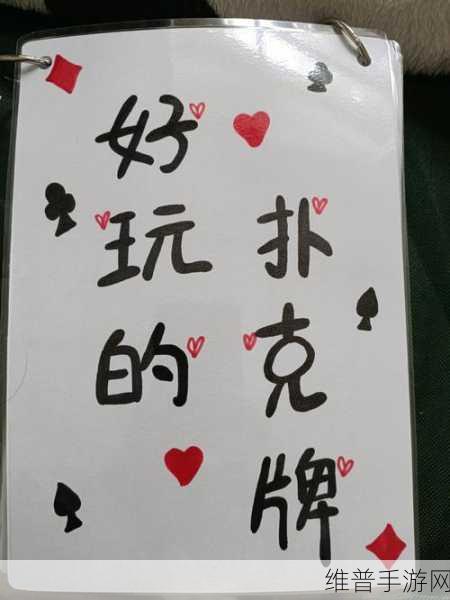 好玩的
扑克牌
维普手游网